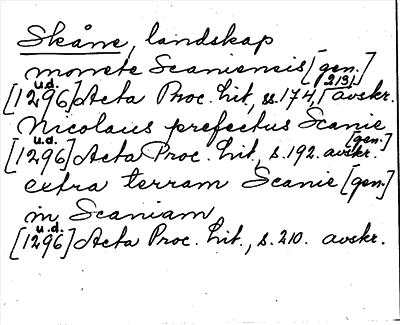 Skåne, landskap
monete Scaniensis [gen.]
[1296] u.d. Acta Proc. lit., ss. 174, 213, avskr.
Nicolaus prefectus Scanie [gen.]
[1296] u.d. Acta Proc. lit., s. 192. avskr.
extra terram Scanie [gen.]
in Scaniam
[1296] u.d. Acta Proc. lit., s. 210. avskr.